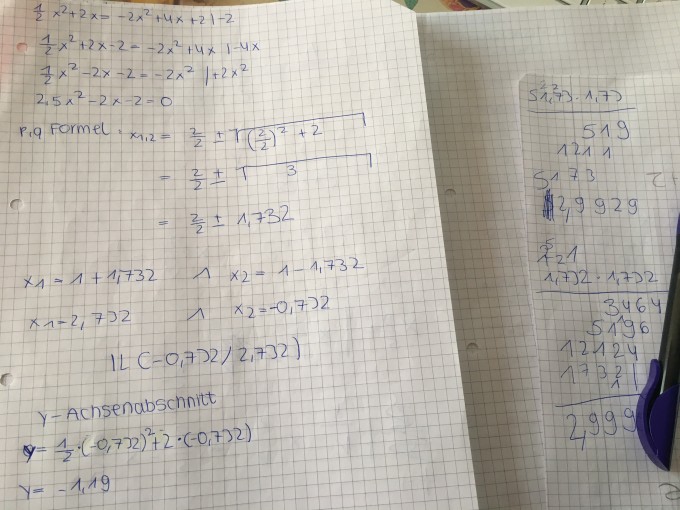 1/2 x² + 2x = -2x² + 4x + 2 | -2
1/2 x² + 2x - 2 = -2x² + 4x | -4x
1/2 x² - 2x - 2 = -2x² | +2x²
2,5x² - 2x - 2 = 0
p,q Formel: x1,2 = 2/2 ± √((2/2)² + 2)
= 2/2 ± √3
= 2/2 ± 1,732
x1 = 1 + 1,732 ∧ x2 = 1 - 1,732
x1 = 2,732 ∧ x2 = -0,732
IL (-0,732 / 2,732)
Y-Achsenabschnitt
y = 1/2 · (-0,732)² + 2 · (-0,732)
y = -1,19
51,73 · 1,73
519
1211
5173
2,9929
1,732 · 1,732
3464
5196
12124
1732
2,999